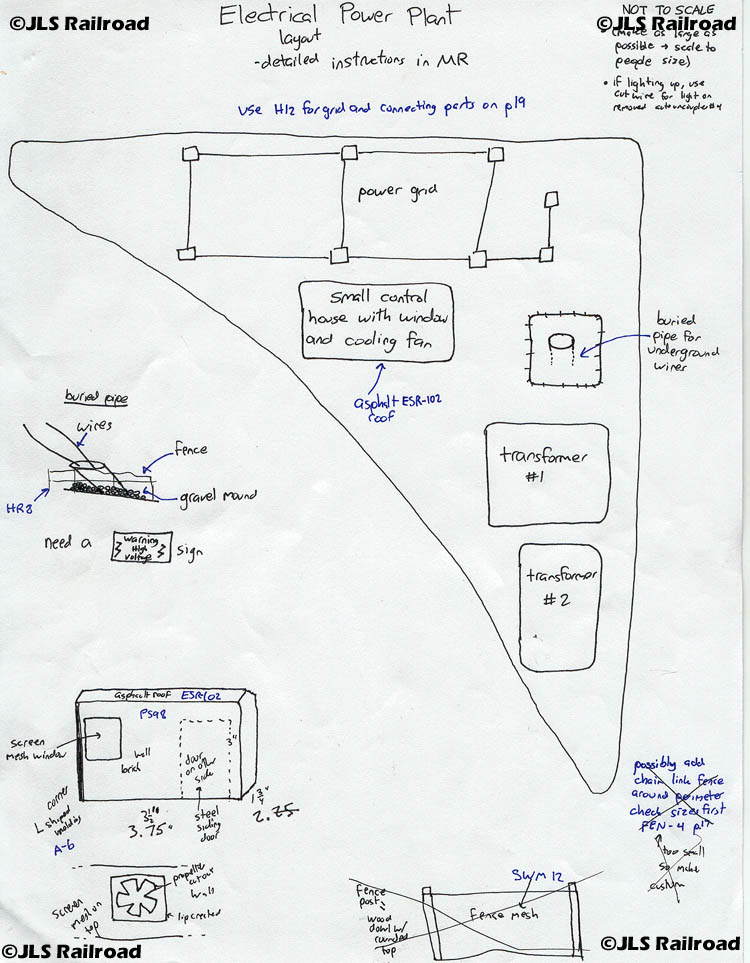 ©JLS Railroad
Electrical Power Plant
layout
-detailed instructions in MR
NOT TO SCALE
©JLS Railroad
(make as large as
possible → scale to
people size)
• if lighting up, use
cut wire for light on
removed
use H12 for grid and connecting parts on p19
power grid
small control
house with window
and cooling fan
asphalt ESR-102
roof
buried
pipe for
underground
transformer
#1
transformer
#2
buried pipe
wires
fence
gravel mound
HR8
need a
warning
High
voltage
sign
asphalt roof ESR-102
PS98
screen
mesh window
wall
brick
door
on other
side
3"
corner
L shaped
molding
A-6
3 1/2"
3.75"
steel
siding
door
1 3/4"
2.25
propeller
cutout
wall
screen
mesh on
top
lip created
fence
post:
wood
dowl w/
rounded
top
SWM 12
fence mesh
possibly add
chain link fence
around perimeter
check sizes first
FEN-4 p17
too small
so make
custom
©JLS Railroad
©JLS Railroad